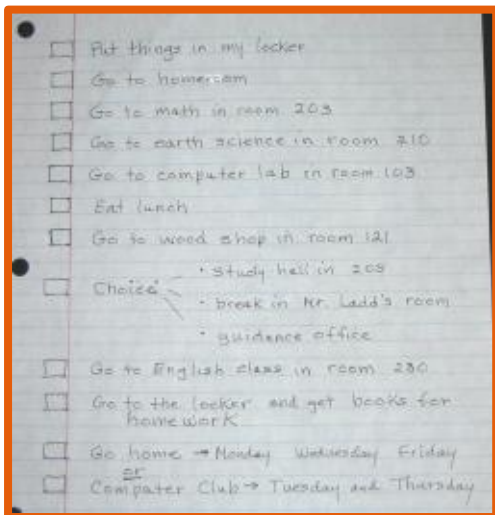 Put things in my locker
Go to homeroom
Go to math in room 203
Go to earth science in room 210
Go to computer lab in room 103
Eat lunch
Go to wood shop in room 121
• study hall in 205
Choice
• break in Mr. Ladd's room
• guidance office
Go to English class in room 230
Go to the locker and get books for
homework
Go home → Monday Wednesday Friday
or
Computer Club → Tuesday and Thursday